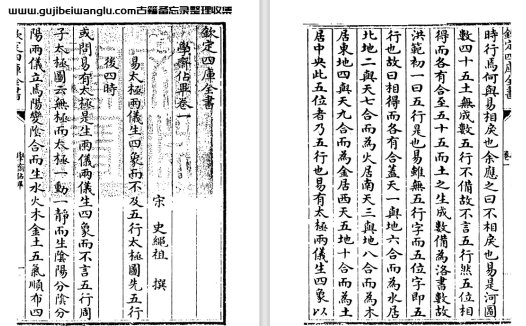 www.gujibeiwanglu.com古籍备忘录整理收集
欽定四庫全書
學齋佔畢卷一
宋 史繩祖 撰
易太極兩儀生四象而不及五行太極圖先五行
後四時
或問易有太極是生兩儀兩儀生四象而不言五行周
子太極圖云無極而太極一動一靜而生陰陽分陰分
陽兩儀立焉陽變陰合而生水火木金土五氣順布四
欽定四庫全書
欽定四庫全書
卷一
時行焉何與易相戾也余應之曰不相戾也易是河圖
數四十五土無成數五行不備故不言五行然五位相
得而各有合至五十五而土之生成數備為洛書數故
洪範初一曰五行是也易雖無五行字而五位字即五
行也故曰相得而各有合蓋天一與地六合而為水居
北地二與天七合而為火居南天三與地八合而為木
居東地四與天九合而為金居西天五地十合而為土
居中央此五位者乃五行也易有太極兩儀生四象以